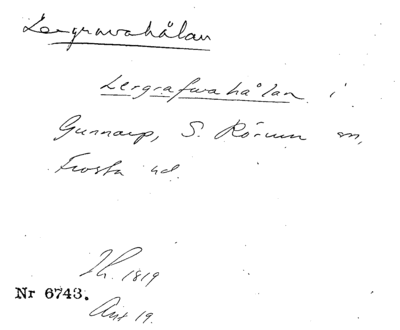 Lergravahålan
Lergrafwahålan i
Gunnarp, S. Rörum sn,
Frosta hd.
Lh. 1819
Nr 6743.
Ant 19.